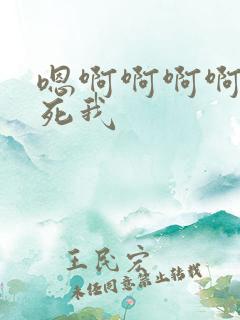 嗯啊啊啊啊
死我
王民宏
未经同意禁止转载